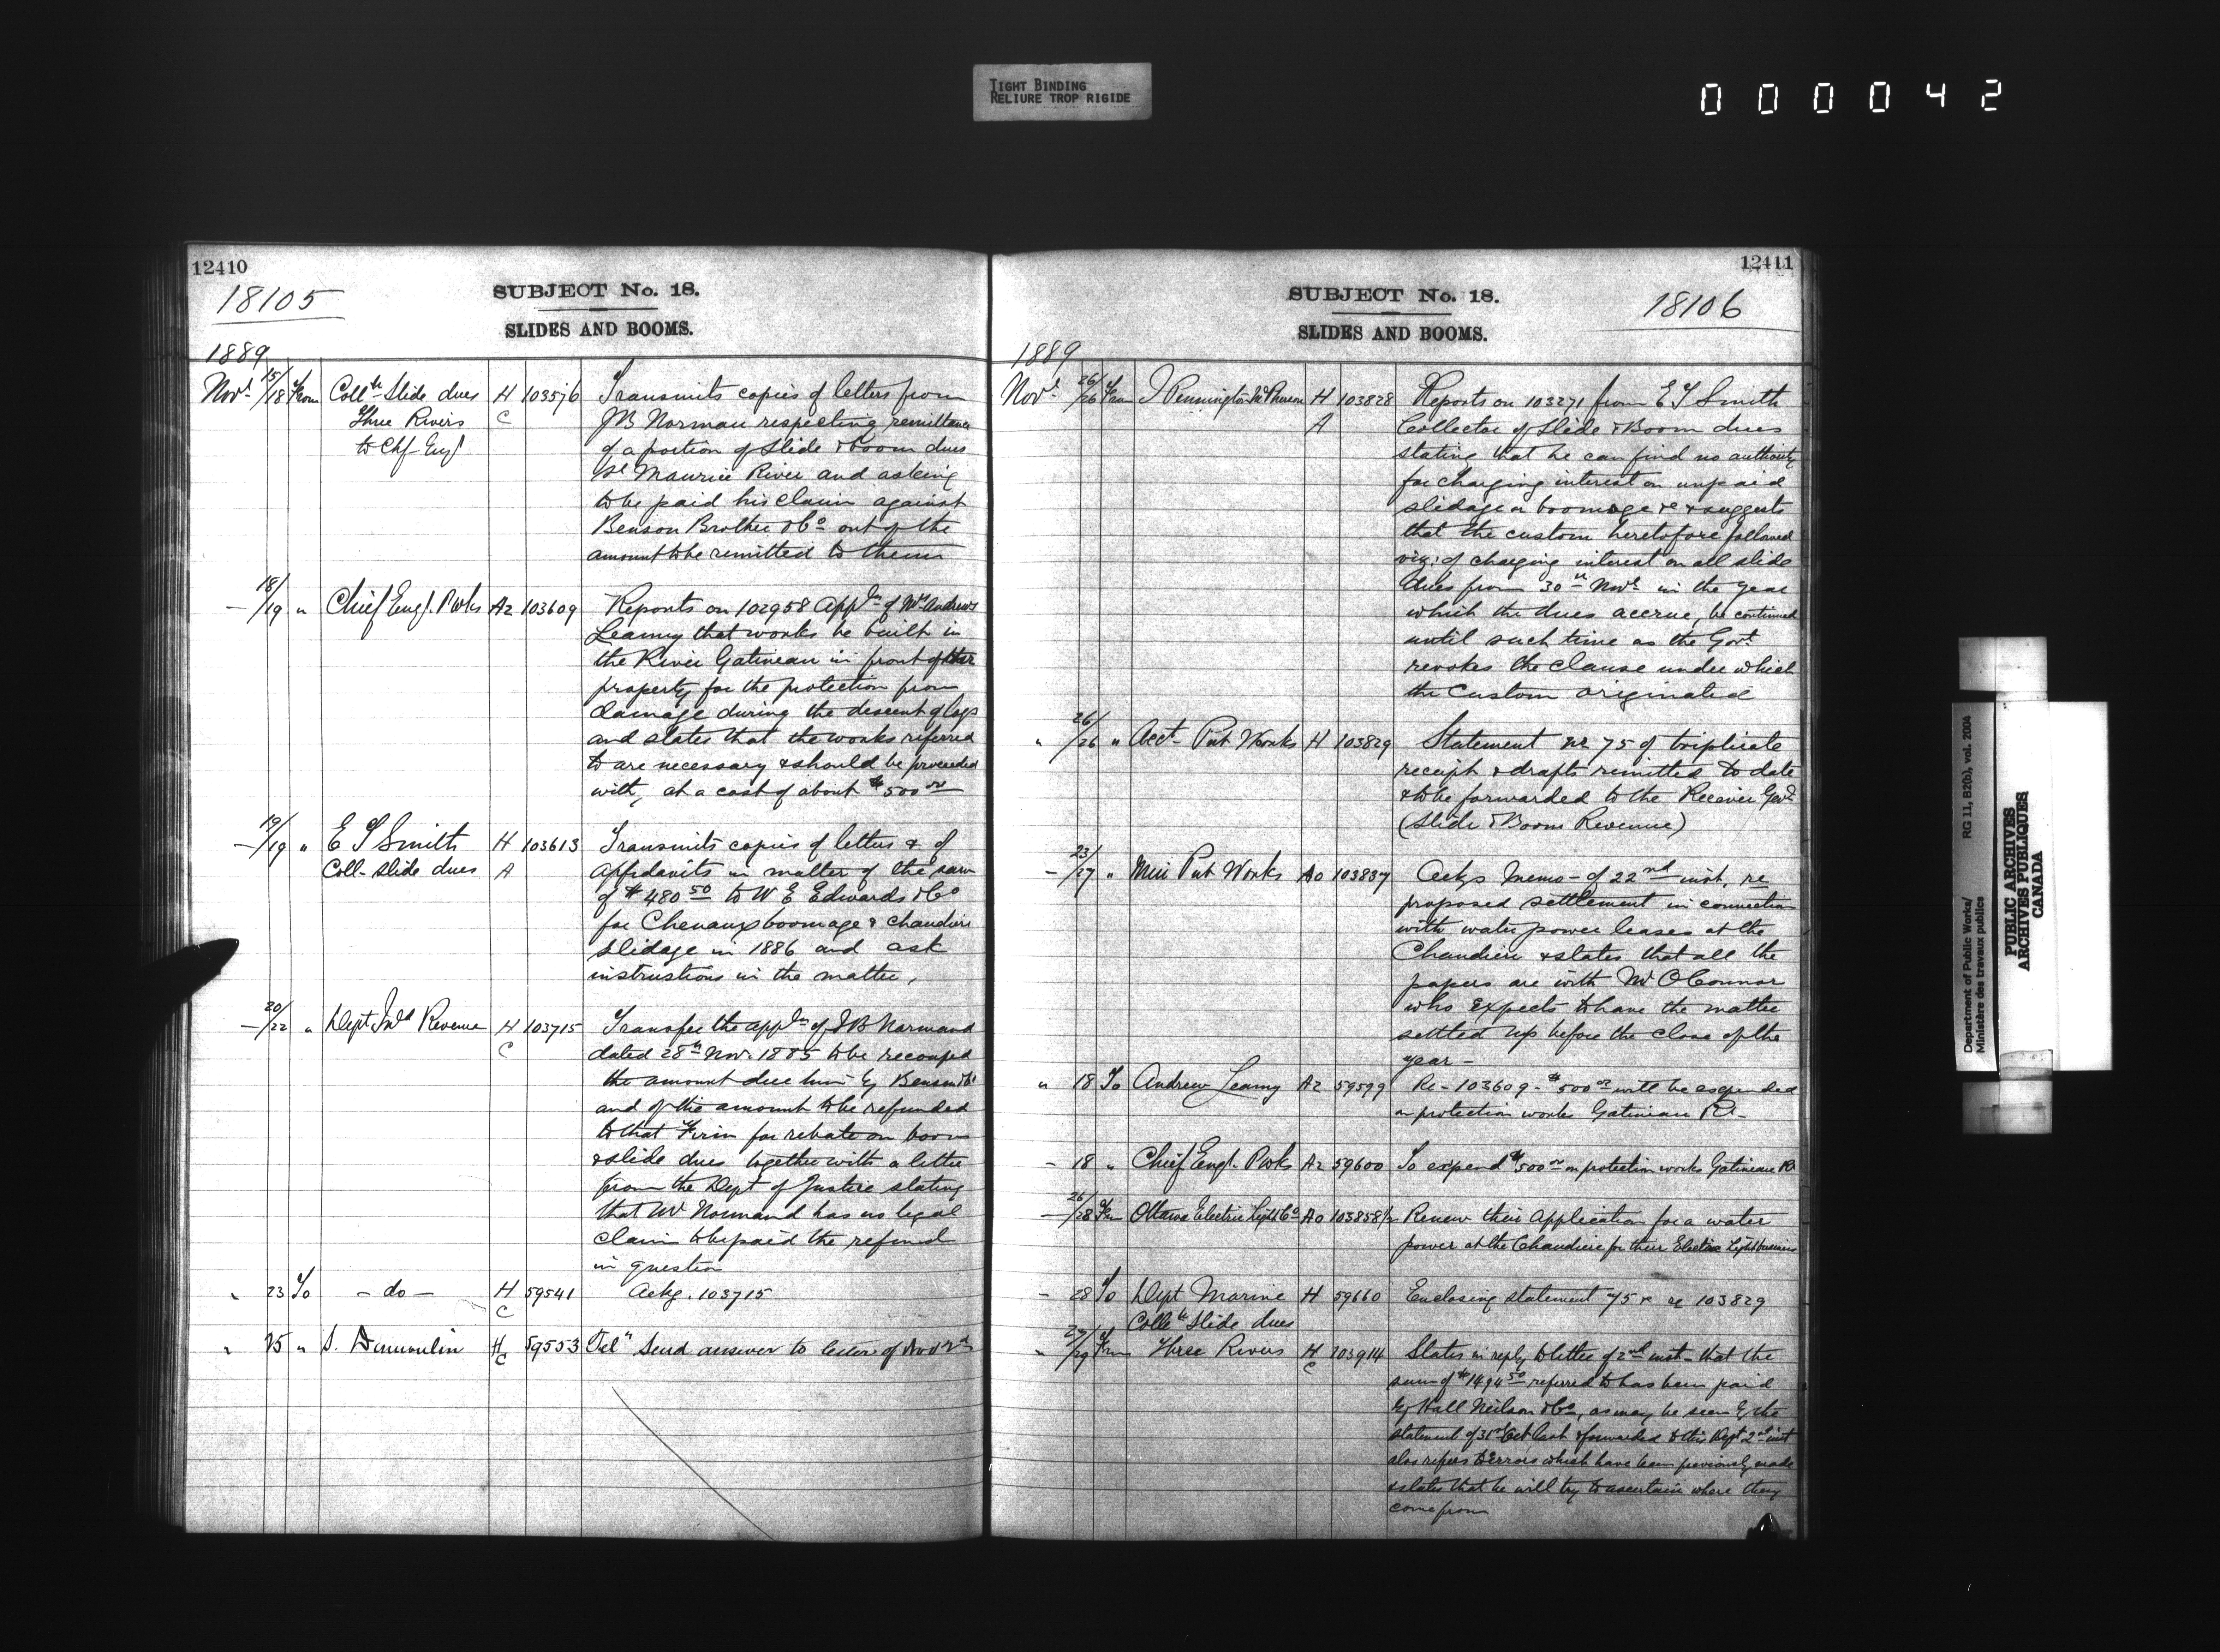 TIGHT BINDING
RELIURE TROP RIGIDE
000042
12410
18105
SUBJECT No. 18.
SLIDES AND BOOMS.
1889
Novr 15/18 From Collr Slide dues H 103576 Transmits copies of letters from
Three Rivers C J B Norman respecting remittance
to Chf Engr of a portion of Slide & boom dues
St Maurice River and asking
to be paid his claim against
Benson Brother & Co out of the
amount to be remitted to them
— 18/19 " Chief Engr. P Wks A2 103609 Reports on 102958 Appln of Mr Andrew
Leamy that works be built in
the River Gatineau in front of
property for the protection from
damage during the descent of logs
and states that the works referred
to are necessary & should be proceeded
with, at a cost of about $500 00
— 19/19 " E T Smith H 103613 Transmits copies of letters & of
Coll- Slide dues A affidavits in matter of the sum
of $480 50 to W E Edwards & Co
for Chenaux boomage & Chaudiere
slidage in 1886 and ask
instructions in the matter,
— 20/22 " Dept Inld Revenue H 103715 Transfer the appln of J B Normand
C dated 28th Nov. 1885 to be recouped
the amount due him by Benson & Co
and of the amount to be refunded
to that Firm for rebate on boom
& slide dues together with a letter
from the Dept of Justice stating
that Mr Normand has no legal
claim to be paid the refund
in question
" 23 To — do — H 59541 Ackg. 103715
C
" 25 " S. Dumoulin H 59553 Tel" Send answer to letter of Nov 2nd
C
12411
SUBJECT No. 18.
18106
SLIDES AND BOOMS.
1889
Novr 26/26 From J Pennington McPherson H 103828 Reports on 103271 from E T Smith
A Collector of Slide & Boom dues
stating that he can find no authority
for charging interest on unpaid
slidage or boomage &c & suggests
that the custom heretofore followed
viz: of charging interest on all slide
dues from 30th Novr in the year
which the dues accrue, be continued
until such time as the Govt
revokes the clause under which
the custom originated
" 26/26 " Acct- Pub Works H 103829 Statement No 75 of triplicate
receipt & drafts remitted to date
& to be forwarded to the Receiver Genl
(Slide & Boom Revenue)
— 23/27 " Min Pub Works A0 103837 Ackgs Memo- of 22nd inst, re
proposed settlement in connection
with water power leases at the
Chaudiere & states that all the
papers are with Mr O'Connor
who expects to have the matter
settled up before the close of the
year —
" 18 To Andrew Leamy A2 59599 Re- 103609 - $500 00 will be expended
on protection works Gatineau Rr-
- 18 " Chief Engr. P Wks A2 59600 To expend $500 00 on protection works Gatineau Rr
— 26/28 From Ottawa Electric Light Co A0 103858 1/2 Renew their Application for a water
power at the Chaudiere for their Electric Light business
- 28 To Dept Marine H 59660 Enclosing statement 75 re 103829
Collr Slide dues
" 27/29 From Three Rivers H 103914 States in reply to letter of 2nd inst- that the
C sum of $1494 50 referred to has been paid
by Hall Neilson & Co, as may be seen by the
statement of 31st Oct last & forwarded to this Dept 2nd inst
also refers to errors which have been previously made
& states that he will try to ascertain where they
come from
Department of Public Works/ RG 11, B2(b), vol. 2004
Ministère des travaux publics
PUBLIC ARCHIVES
ARCHIVES PUBLIQUES
CANADA